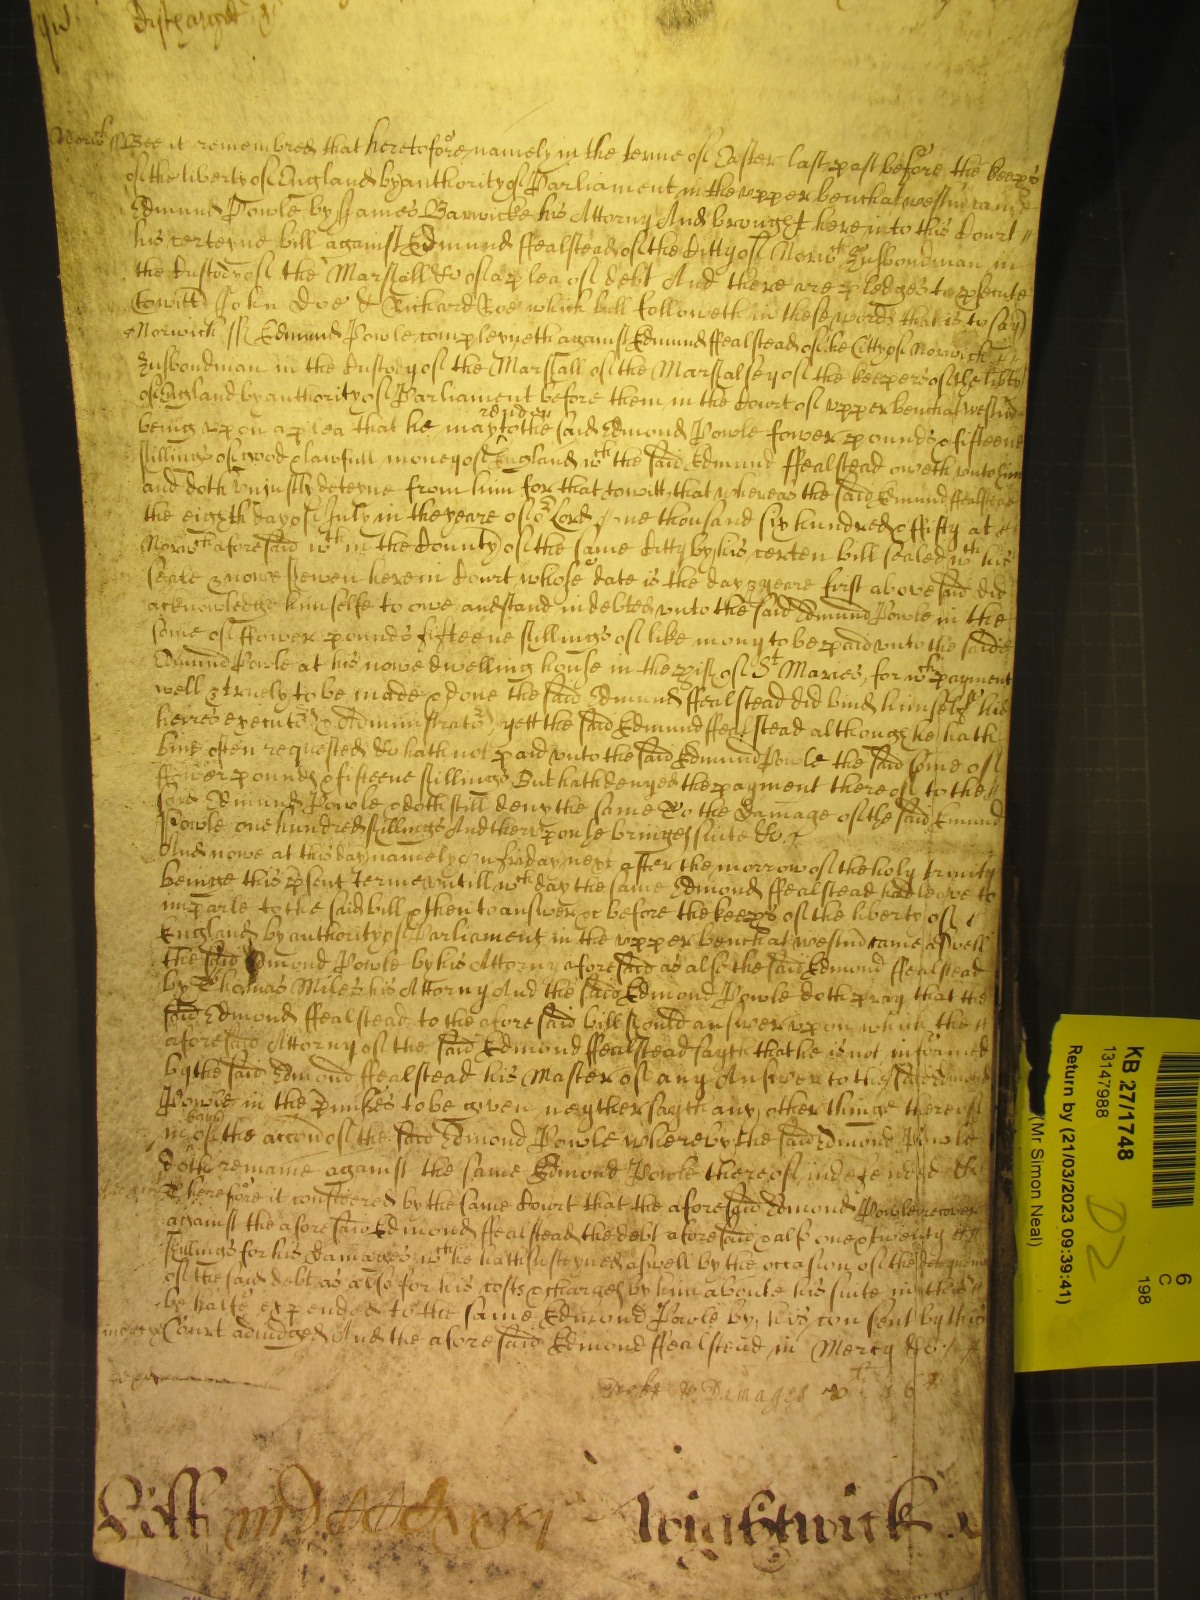 discharged &
Norwch ss Bee it remembred that heretofore namely in the terme of Easter last past before the keeps
of the liberty of England by authority of Parliament in the upper bench at westmr came
Edmund Powle by James Barwicke his Attorny And brought here into this Court
his certeyne bill against Edmund ffealstead of the Citty of Norwch husbondman in
the Custody of the Marshall &c of a plea of debt And there are pledges to psecute
towitt John Doe & Richard Roe which bill followeth in these words that is to say
Norwich ss Edmund Powle compleyneth against Edmund ffealstead of the Citty of Norwich
husbondman in the Custody of the Marshall of the Marshalsey of the keepers of the libty
of England by authority of Parliament before them in the Court of upper bench at westmr
being uppon a plea that he may render to the said Edmond Powle fower pounds & fifteene
shillings of good & lawfull money of England wch the said Edmund ffealstead oweth unto him
and doth uniustly deteyne from him for that towitt that whereas the said Edmund ffealstead
the eighth day of July in the yeare of or Lord one thousand six hundred & fifty at
Norwch aforesaid wth in the County of the same Citty by his certen bill sealed wth his
seale & nowe shewen here in Court whose date is the day & yeare first above said did
acknowledge himselfe to owe and stand indebted unto the said Edmund Powle in the
some of ffower pounds fifteene shillings of like mony to be paid unto the said
Edmund Powle at his nowe dwelling house in the pish of St Maries, for wch payment
well & truely to be made & done the said Edmund ffealstead did bind himself his
heires executrs & Administratrs yett the said Edmund ffealstead although he hath
bine often requested &c hath not paid unto the said Edmund Powle the said some of
ffower pounds & fifteene shillings But hath denyed the payment thereof to the
said Edmund Powle & doth still deny the same To the damage of the said Emund
Powle one hundred shillings And thereuppon he bringeth suite &c
And nowe at this day namely on friday next after the morrow of the holy trinity
beinge this psent Terme untill wch day the same Edmond ffealstead had leave to
imparle to the said bill & then to answer &c before the keeps of the liberty of
England by authority of Parliament in the upper bench at westmr came aswell
the said Edmond Powle by his Attorny aforesaid as also the said Edmond ffealstead
by Thomas Miles his Attorny And the said Edmond Powle doth pray that the
said Edmond ffealstead to the aforesaid bill should answer upon which the
aforesaid Attorny of the said Edmond ffealstead sayth that he is not informed
by the said Edmond ffealstead his Master of any Answer to the said Edmond
Powle in the pmises to be given neyther sayth any other thinge thereof
in of the accon of the said Edmond Powle whereby the said Edmond Powle
doth remaine against the same Edmond Powle thereof indefended &c
Therefore it consedered by the same Court that the aforesaid Edmond Powle recover
against the aforesaid Edmond ffealstead the debt aforesaid & also one & twenty
shillings for his damages wch he hath susteyned aswell by the occasion of the deteyning
of the said debt as also for his costs & charges by him aboute his suite in this
behalfe expended to the same Edmond Powle by his consent by this
mercy Court adiudged And the aforesaid Edmond ffealstead in Mercy &c
Debt & Damages
Wightwick
KB 27/1748
13147988
Return by (21/03/2023 09:39:41)
(Mr Simon Neal)
6
C
198
D2